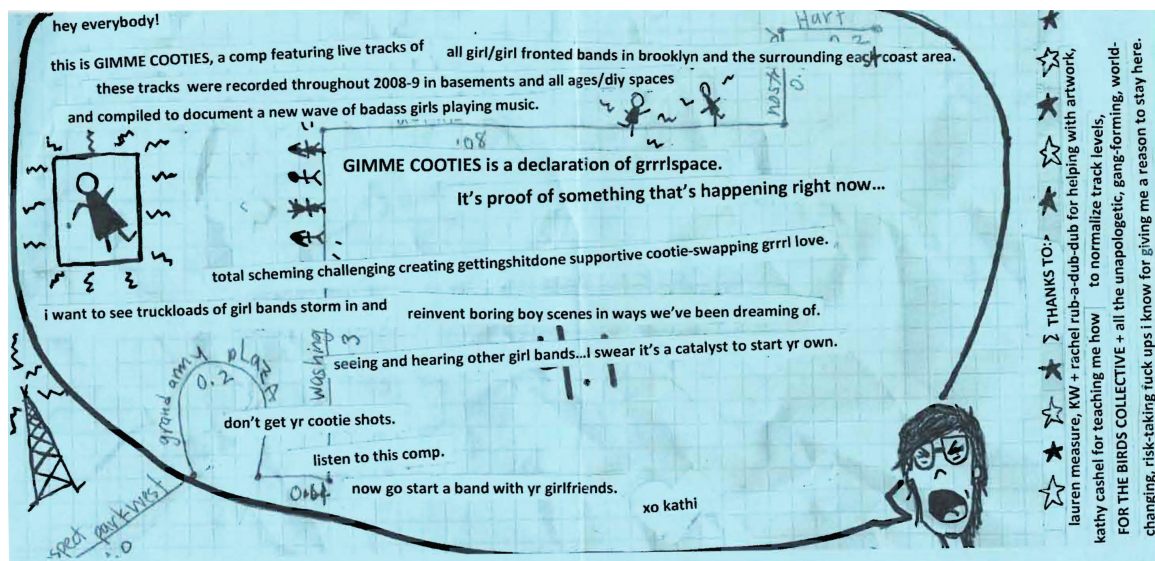 hey everybody!
this is GIMME COOTIES, a comp featuring live tracks of all girl/girl fronted bands in brooklyn and the surrounding east coast area.
these tracks were recorded throughout 2008-9 in basements and all ages/diy spaces
and compiled to document a new wave of badass girls playing music.
GIMME COOTIES is a declaration of grrrlspace.
It's proof of something that's happening right now...
total scheming challenging creating gettingshitdone supportive cootie-swapping grrrl love.
i want to see truckloads of girl bands storm in and reinvent boring boy scenes in ways we've been dreaming of.
seeing and hearing other girl bands...I swear it's a catalyst to start yr own.
don't get yr cootie shots.
listen to this comp.
now go start a band with yr girlfriends.
xo kathi
Hart
.08
grand army plaza
0.2
washing
3
4.1
0.64
spect park west
THANKS TO:
lauren measure, KW + rachel rub-a-dub-dub for helping with artwork,
kathy cashel for teaching me how to normalize track levels,
FOR THE BIRDS COLLECTIVE + all the unapologetic, gang-forming, world-
changing, risk-taking fuck ups i know for giving me a reason to stay here.